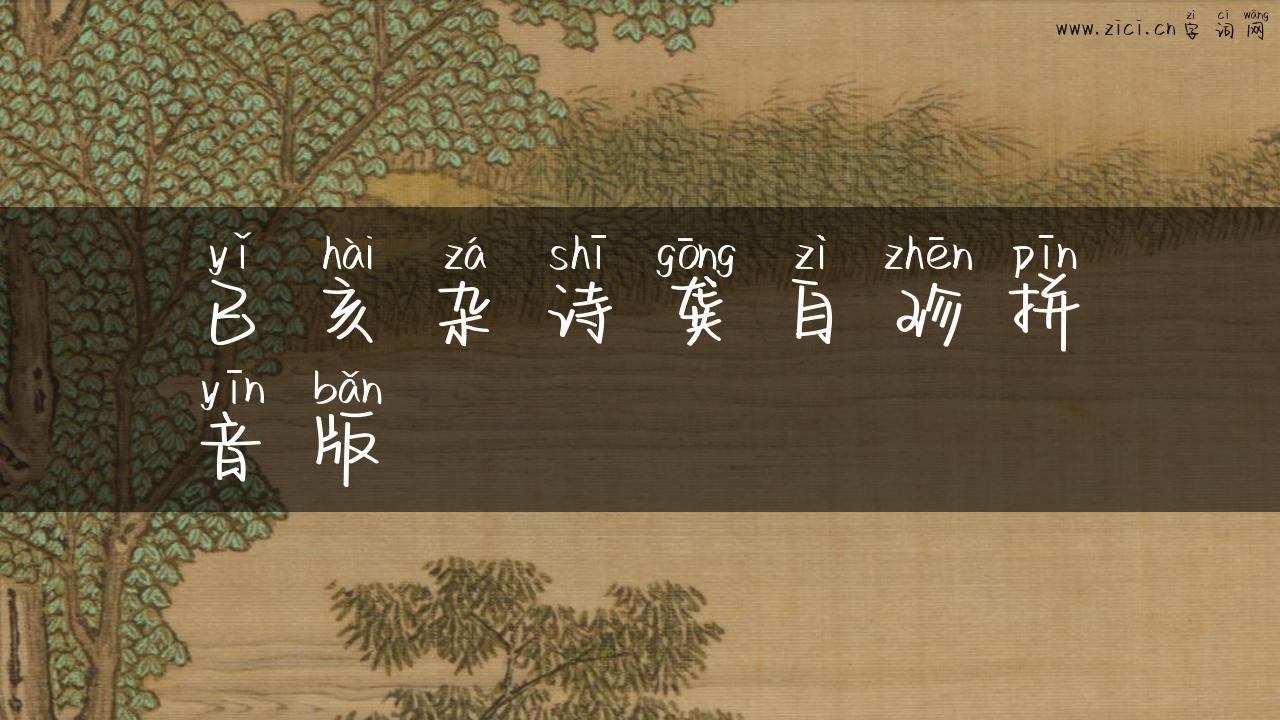 zì cí wǎng
www.zici.cn 字 词 网
yǐ hài zá shī gōng zì zhēn pīn
已 亥 杂 诗 龚 自 珍 拼
yīn bǎn
音 版